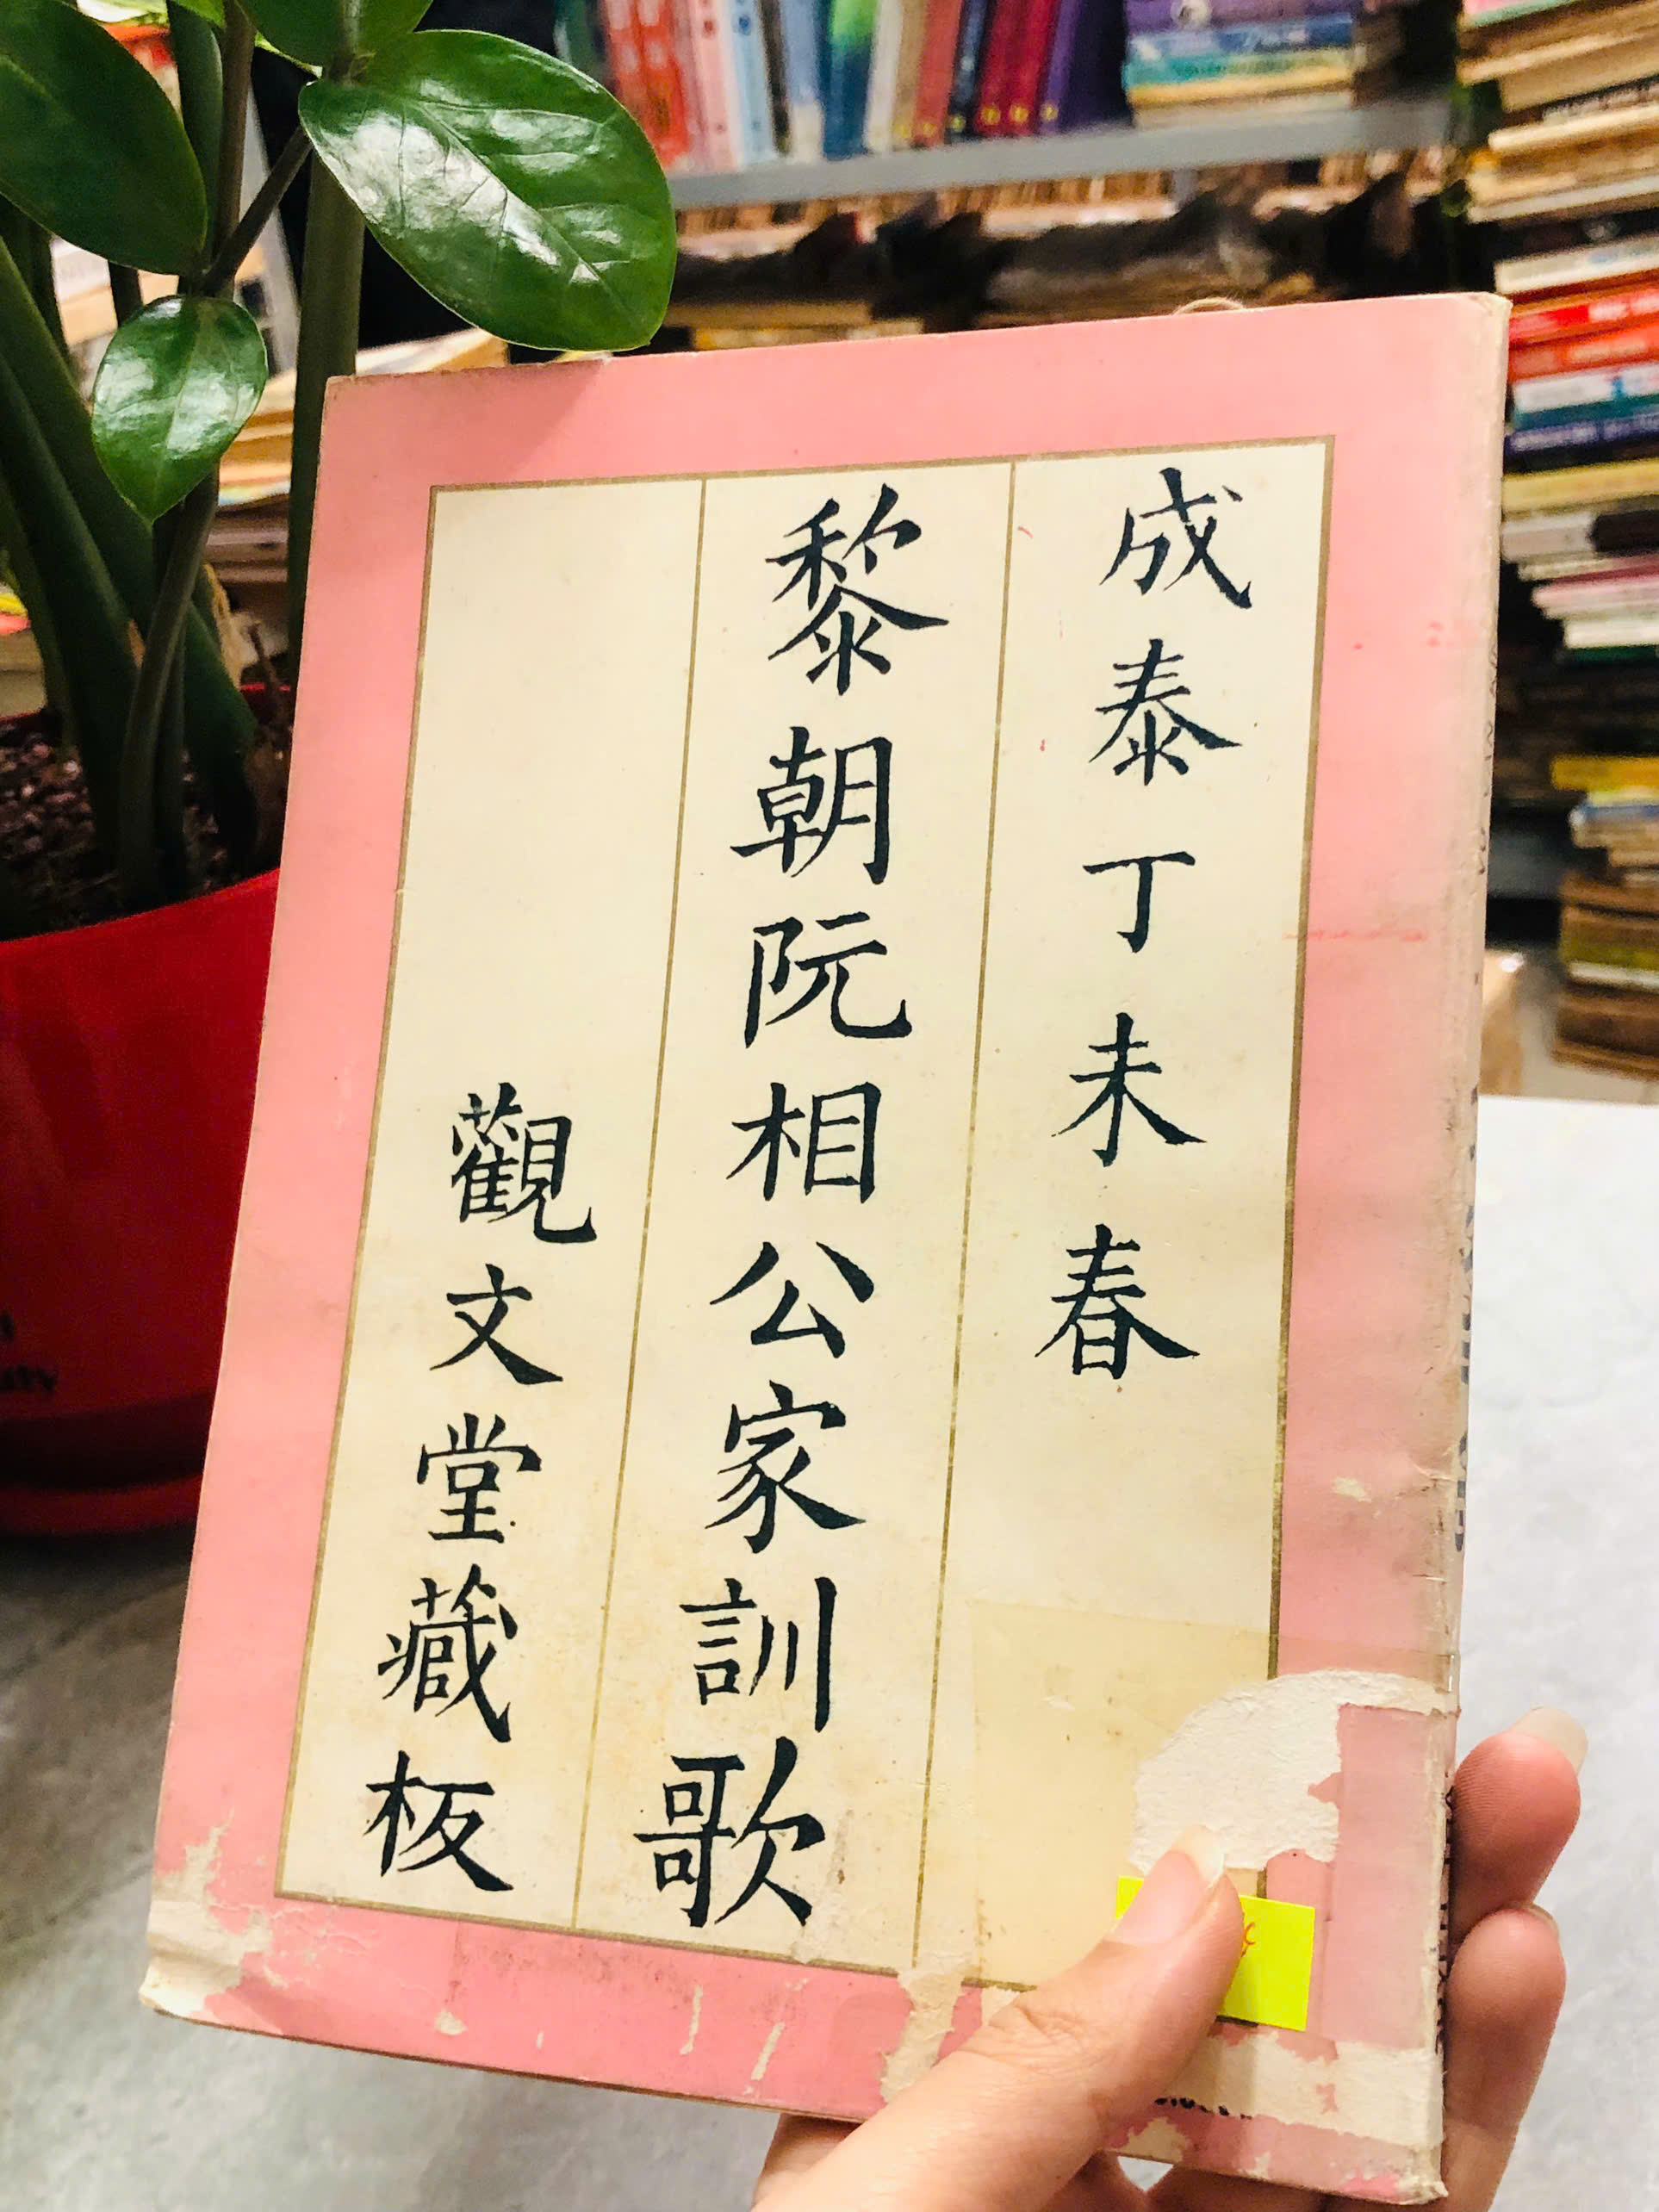 成泰丁未春
黎朝阮相公家訓歌
觀文堂藏板